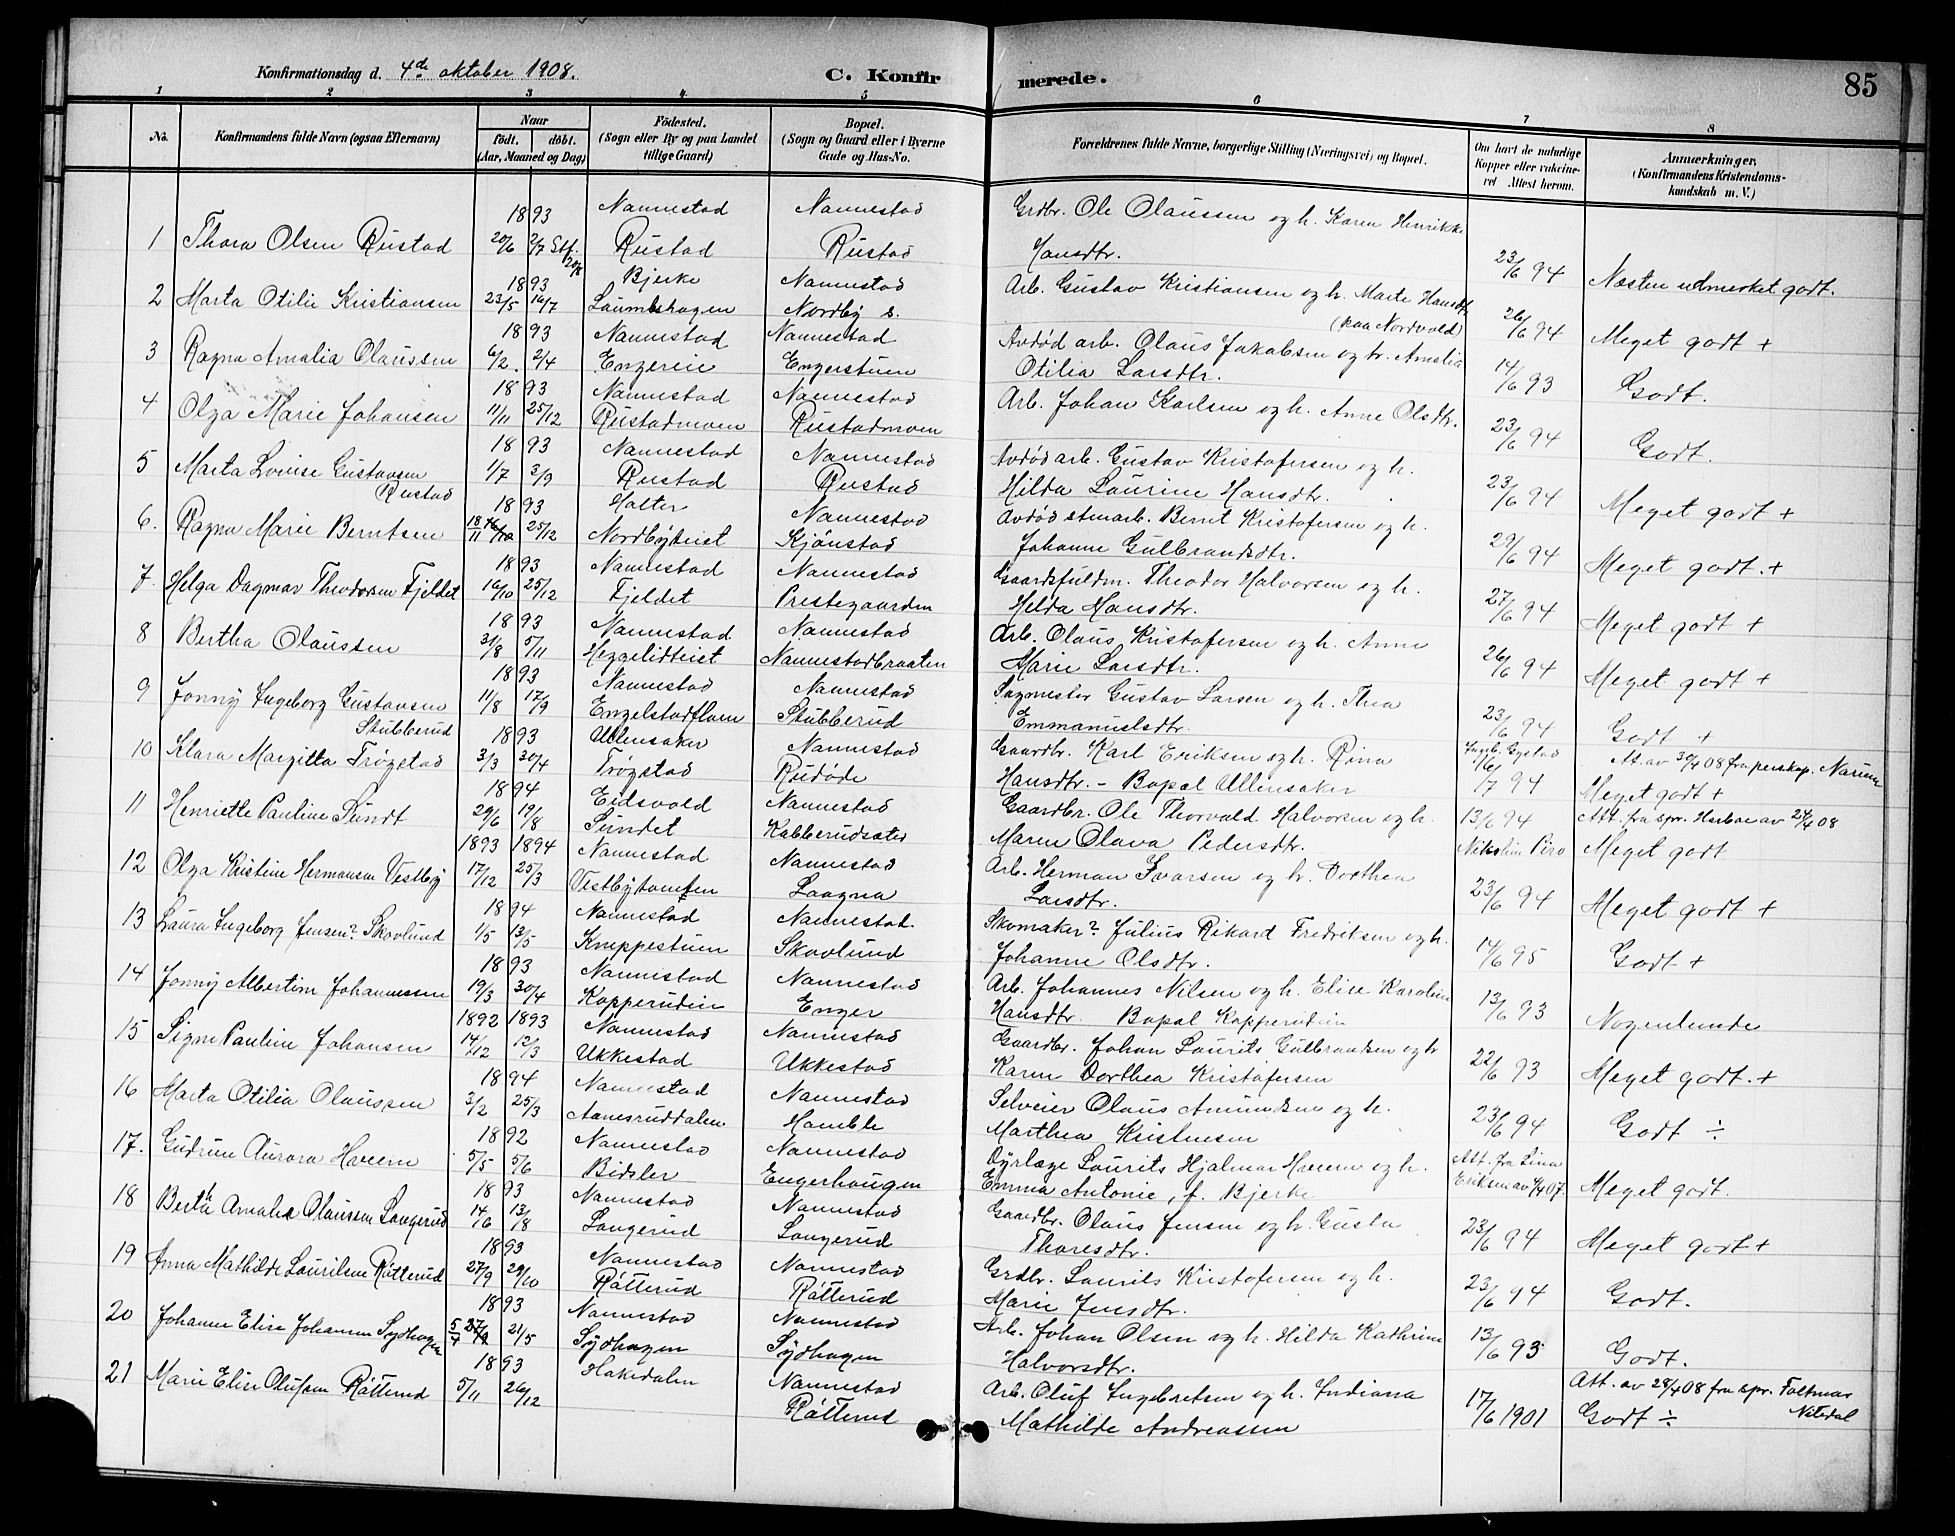 Konfirmationsdag d. 4de oktober 1908.
C. Konfirmerede.
85
1 2 3 4 5 6 7 8
No.
Konfirmandens fulde Navn (ogsaa Efternavn)
Naar
født. døbt.
(Aar, Maaned og Dag)
Fødested.
(Sogn eller By og paa Landet
tillige Gaard)
Bopæl.
(Sogn og Gaard eller i Byerne
Gade og Hus-No.
Forældrenes fulde Navne, borgerlige Stilling (Næringsvei) og Bopæl.
Om havt de naturlige
Kopper eller vakcine-
ret Attest herom.
Anmærkninger.
(Konfirmandens Kristendoms-
kundskab m. V.)
1893 Nannestad Nannestad Grdbr. Ole Olaussen og h. Karen Henrikke
1 Thora Olsen Rustad 20/6 2/7 Stf. 20/8 Rustad Rustad Hansdtr. 23/6 94 Næsten udmerket godt.
1893 Bjerke Nannestad Arb. Gustav Kristiansen og h. Marte Hansdtr.
2 Marta Otilie Kristiansen 23/5 16/7 Nordby s. (paa Nordvold) 26/6 94 Meget godt +
1893 Nannestad Nannestad Avdød arb. Olaus Jakobsen og h. Amalia
3 Ragna Amalia Olaussen 6/2. 2/4 Engereie Engerstuen Otilia Larsdtr. 14/6 93 Godt.
1893 Nannestad Nannestad Arb. Johan Karlsen og h. Anne Olsdtr.
4 Olga Marie Johansen 11/11 25/12 Rustadmoen Rustadmoen 23/6 94 Godt.
1893 Nannestad Nannestad Avdød arb. Gustav Kristofersen og h.
5 Marta Lovise Gustavsen Rustad 1/7 3/9 Rustad Rustad Hilda Laurine Hansdtr. 23/6 94 Meget godt +
1893 Holter Nannestad Avdød stenarb. Bernt Kristofersen og h.
6. Ragna Marie Berntsen 18/11 25/12 Nordbyteiet Kjönstad Johanne Gulbrandsdtr. 29/6 94 Meget godt. +
1893 Nannestad Nannestad Gaardsfuldm. Theodor Halvorsen og h.
7. Helga Dagmar Theodorsen Fjeldet 16/10 25/12 Fjeldet Prestegaarden Helda Hansdtr. 27/6 94 Meget godt +
1893 Nannestad Nannestad Arb. Olaus Kristofersen og h. Anne
8 Bertha Olaussen 31/8 5/11 Heggelidteiet Nannestadbraaten Marie Larsdtr. 26/6 94 Meget godt +
1893 Nannestad Nannestad Sagmester Gustav Larsen og h. Thea
9 Jonny Ingeborg Gustavsen Stubberud 11/8 17/9 Engelstadfloen Stubberud Emmanuelsdtr. 23/6 94 Godt +
1893 Ullensaker Nannestad Gaardbr. Karl Eriksen og h. Rina Ingeb. Gystad At. av 30/4 08 fra perskap.
10 Klara Margitta Trøgstad 3/3 30/4 Trøgstad Rudøde Hansdtr. - Bopæl Ullensaker 16/7 94 Meget godt +
1894 Eidsvold Nannestad Gaardbr. Ole Thorvald Halvorsen og h. 13/6 94 Att. fra spr. Horboe av 24/4 08
11 Henriette Pauline Sundt 29/6 19/8 Sundet Kabberudsæter Maren Olava Pedersdtr. Meget godt
1893 1894 Nannestad Nannestad Arb. Herman Ivarsen og h. Dorthea
12 Olga Kristine Hermansen Vestby 17/12 25/3 Vestbytomten Laagna Larsdtr. 23/6 94 Meget godt +
1894 Nannestad Nannestad. Skomaker? Julius Rikard Fredriksen og h.
13 Laura Ingeborg Jensen? Skovlund 1/5 13/5 Kneppestuen Skovlund Johanne Olsdtr. 14/6 95 Godt +
1893 Nannestad Nannestad Arb. Johannes Nilsen og h. Elise Karoline
14 Jonny Albertine Johannessen 19/3 30/4 Kopperudeie Enger Hansdtr. Bopæl Kopperudeie 13/6 93 Nogenlunde
1892 1893 Nannestad Nannestad Gaardbr. Johan Laurits Gulbrandsen og h
15 Signe Pauline Johansen 14/12 12/3 Ukkestad Ukkestad Karen Dorthea Kristofersen 22/6 93 Meget godt. +
1894 Nannestad Nannestad Selveier Olaus Amundsen og h.
16 Marta Otilia Olaussen 3/2 25/3 Aamesruddalen Hamble Marthea Kristensen 23/6 94 Godt ÷
1892 Nannestad Nannestad Dyrlæge Laurits Hjalmar Hareem og h. Att. fra Lina
17. Gudrun Aurora Hareem 5/5 5/6 Bidsler Engerhaugen Emma Antonie, f. Bjerke Eriksen av 4/4 07. Meget godt.
1893 Nannestad Nannestad Gaardbr. Olaus Jensen og h. Gusta
18 Berth Amalie Olaussen Langerud 14/6 13/8 Langerud Langerud Thoresdtr. 23/6 94 Meget godt +
1893 Nannestad Nannestad Grdbr. Laurits Kristofersen og h.
19 Anna Mathilde Lauritsne Råtterud 27/9 29/10 Råtterud Råtterud Marie Jensdtr. 23/6 94 Godt.
1893 Nannestad Nannestad Arb. Johan Olsen og h. Hilda Kathrine
20 Johanne Elise Johansen Sydhagen 5/4 21/5 Sydhagen Sydhagen Halvorsdtr. 13/6 93 Godt.
1893 Hakedalen Nannestad Arb. Oluf Ingebretsen og h. Indiana Att. av 28/4 08 fra spr. Foltmar
21 Marie Elise Olufsen Råtterud 5/11 26/12 Råtterud Mathilde Andreassen 17/6 1901 Godt ÷ Nitedal